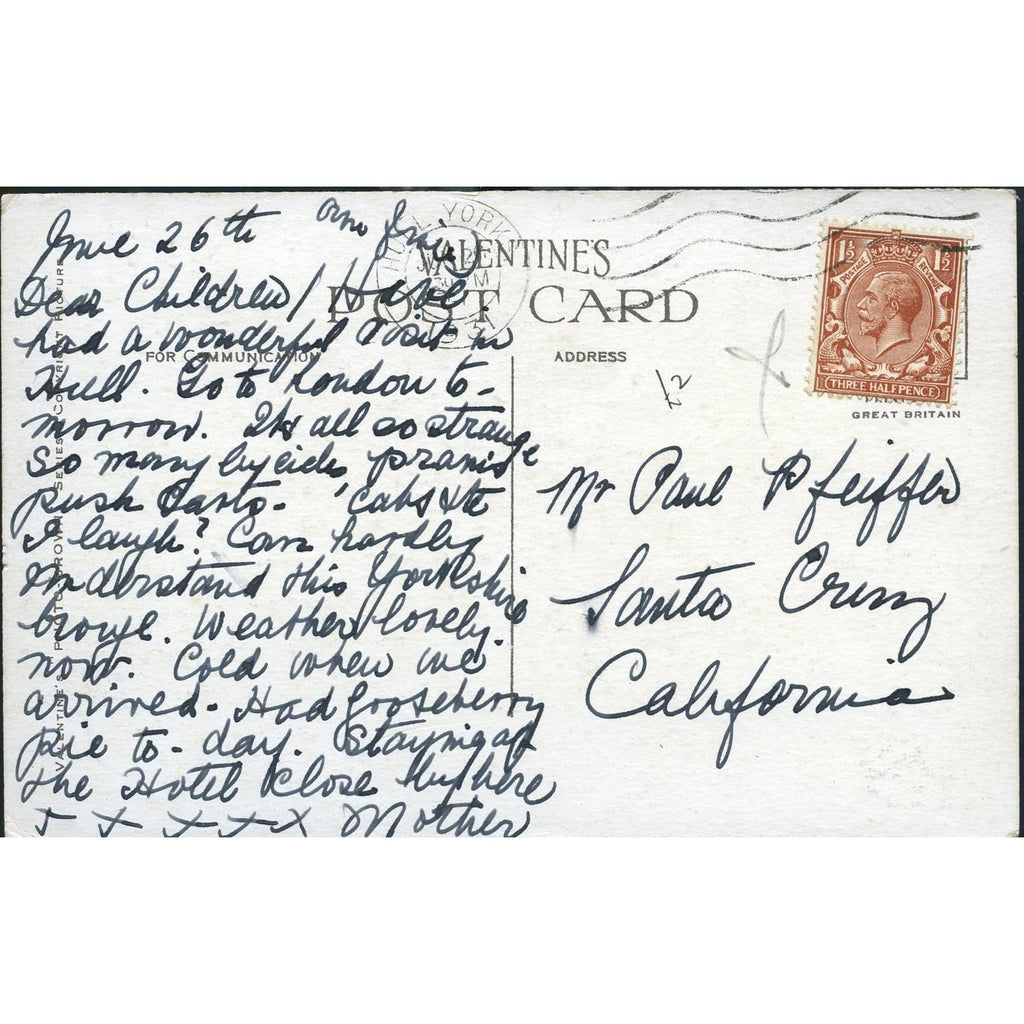 June 26th
Dear Children / Have
had a wonderful Visit in
Hull. Go to London to-
morrow. It's all so strange
So many bycicles prams
push carts - cabs etc
I laugh? Can hardly
understand this Yorkshire
broge. Weather lovely
now. Cold when we
arrived. Had gooseberry
pie to-day. Staying at
the Hotel close by here
x x x x x Mother
VALENTINE'S
POST CARD
FOR COMMUNICATION
ADDRESS
HULL YORKS
1½ 1½
POSTAGE REVENUE
THREE HALFPENCE
GREAT BRITAIN
Mr Paul Pfeiffer
Santa Cruz
California
VALENTINE'S PHOTO-BROWN SERIES COPYRIGHT PICTURE